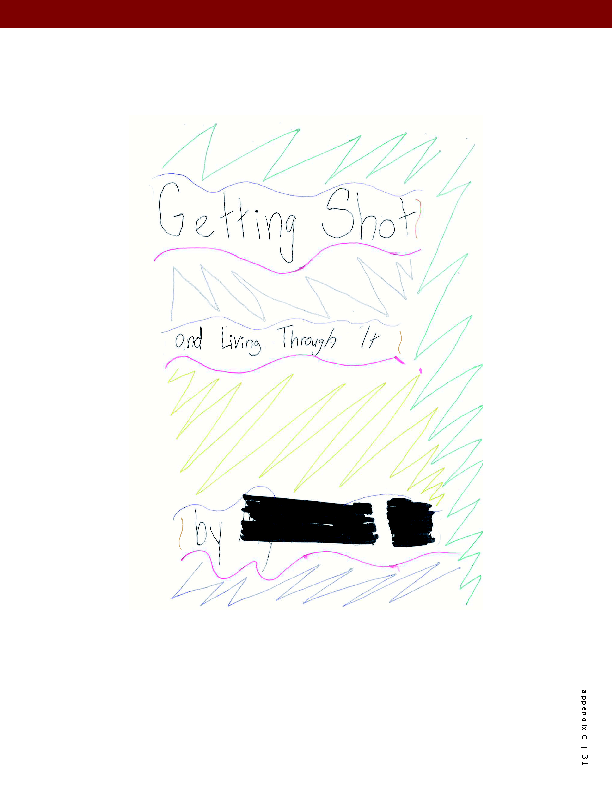 Getting Shot
and Living Through It
by
appendix C | 31